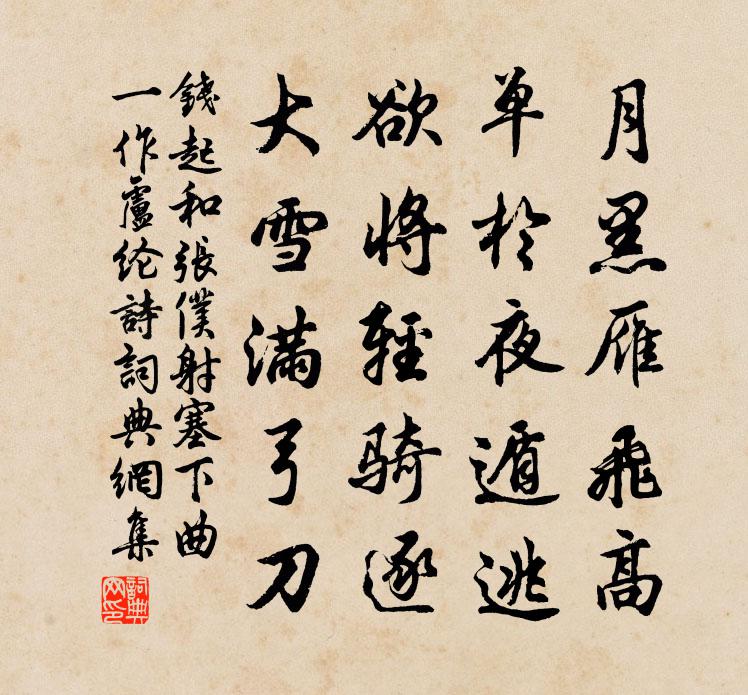 月黑雁飛高
单於夜遁逃
欲將輕騎逐
大雪滿弓刀
錢起和張僕射塞下曲
一作盧纶詩詞典網集
詞典